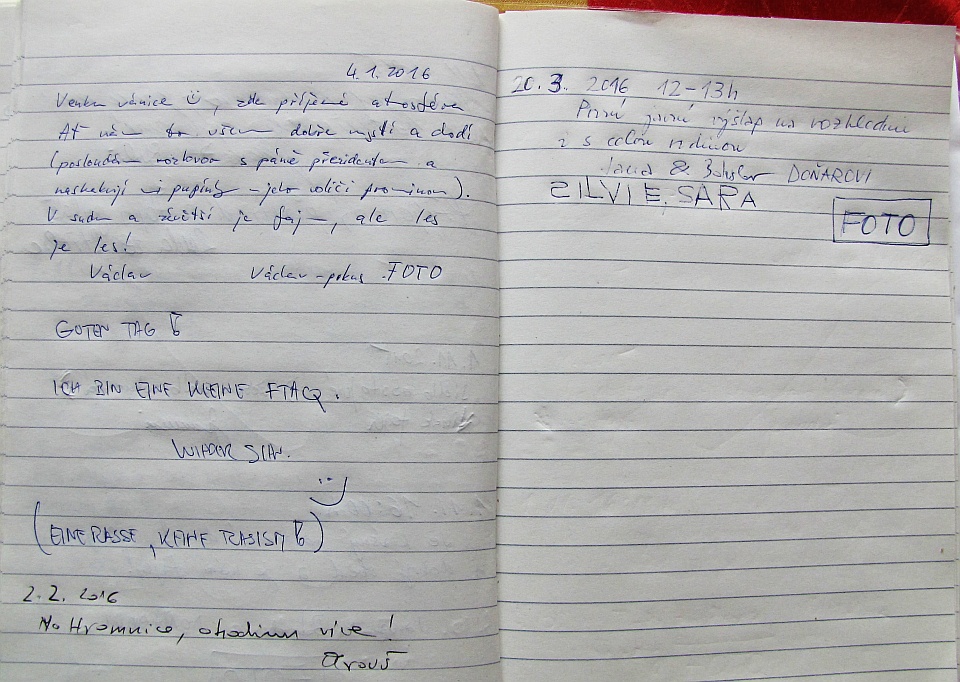 4.1.2016
Venku vánice, zde příjemná atmosféra
Ať nám to všem dobře myslí a chodí
(poslouchám rozhovor s páně prezidentem a
naskakují mi pupínky – jeho voliči prominou).
V sudu a zácvětší je fajn, ale les
je les!
Václav Václav-pokus FOTO
GOTEN TAG
ICH BIN EINE KLEINE FTACQ.
WIADER SIAN.
:-)
(EINE RASSE, KEINE RASISM)
2.2. 2016
Na Hromnice, o hodinu více!
20.3. 2016 12-13h
První jarní výšlap na rozhlednu
i s celou rodinou
Jana & Bohuslav DOŇAROVI
SILVIE, SARA
FOTO